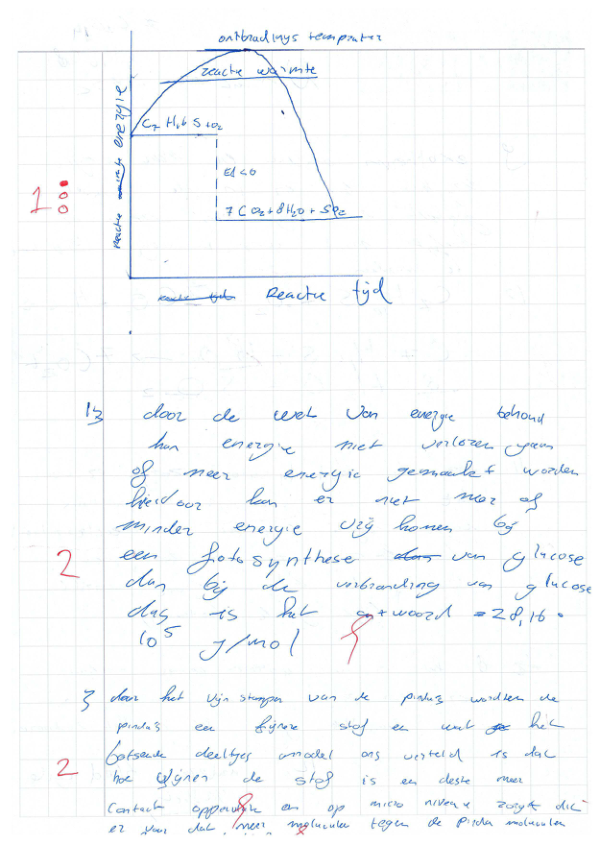 ontbradings tempratuur
reactie warmte
C7 H16 S + O2
ΔE<0
7 CO2 + 8H2O + SO2
reactie energie
1
Reactie tijd
13 door de wet van energie behoud
kan energie niet verloren gaan
of meer energie gemaakt worden
hierdoor kan er niet meer of
minder energie vrij komen bij
2
een fotosynthese van glucose
dan bij de verbranding van glucose
dus is het antwoord = 28,16 ·
10^5 J/mol
3 door het fijn stampen van de pinda's worden de
pinda's een fijnere stof en wat het
botsende deeltjes model ons verteld is dat
2
hoe fijner de stof is en deste meer
contact oppervlak en op micro niveau zorgt dit
er voor dat meer moleculen tegen de pinda moleculen